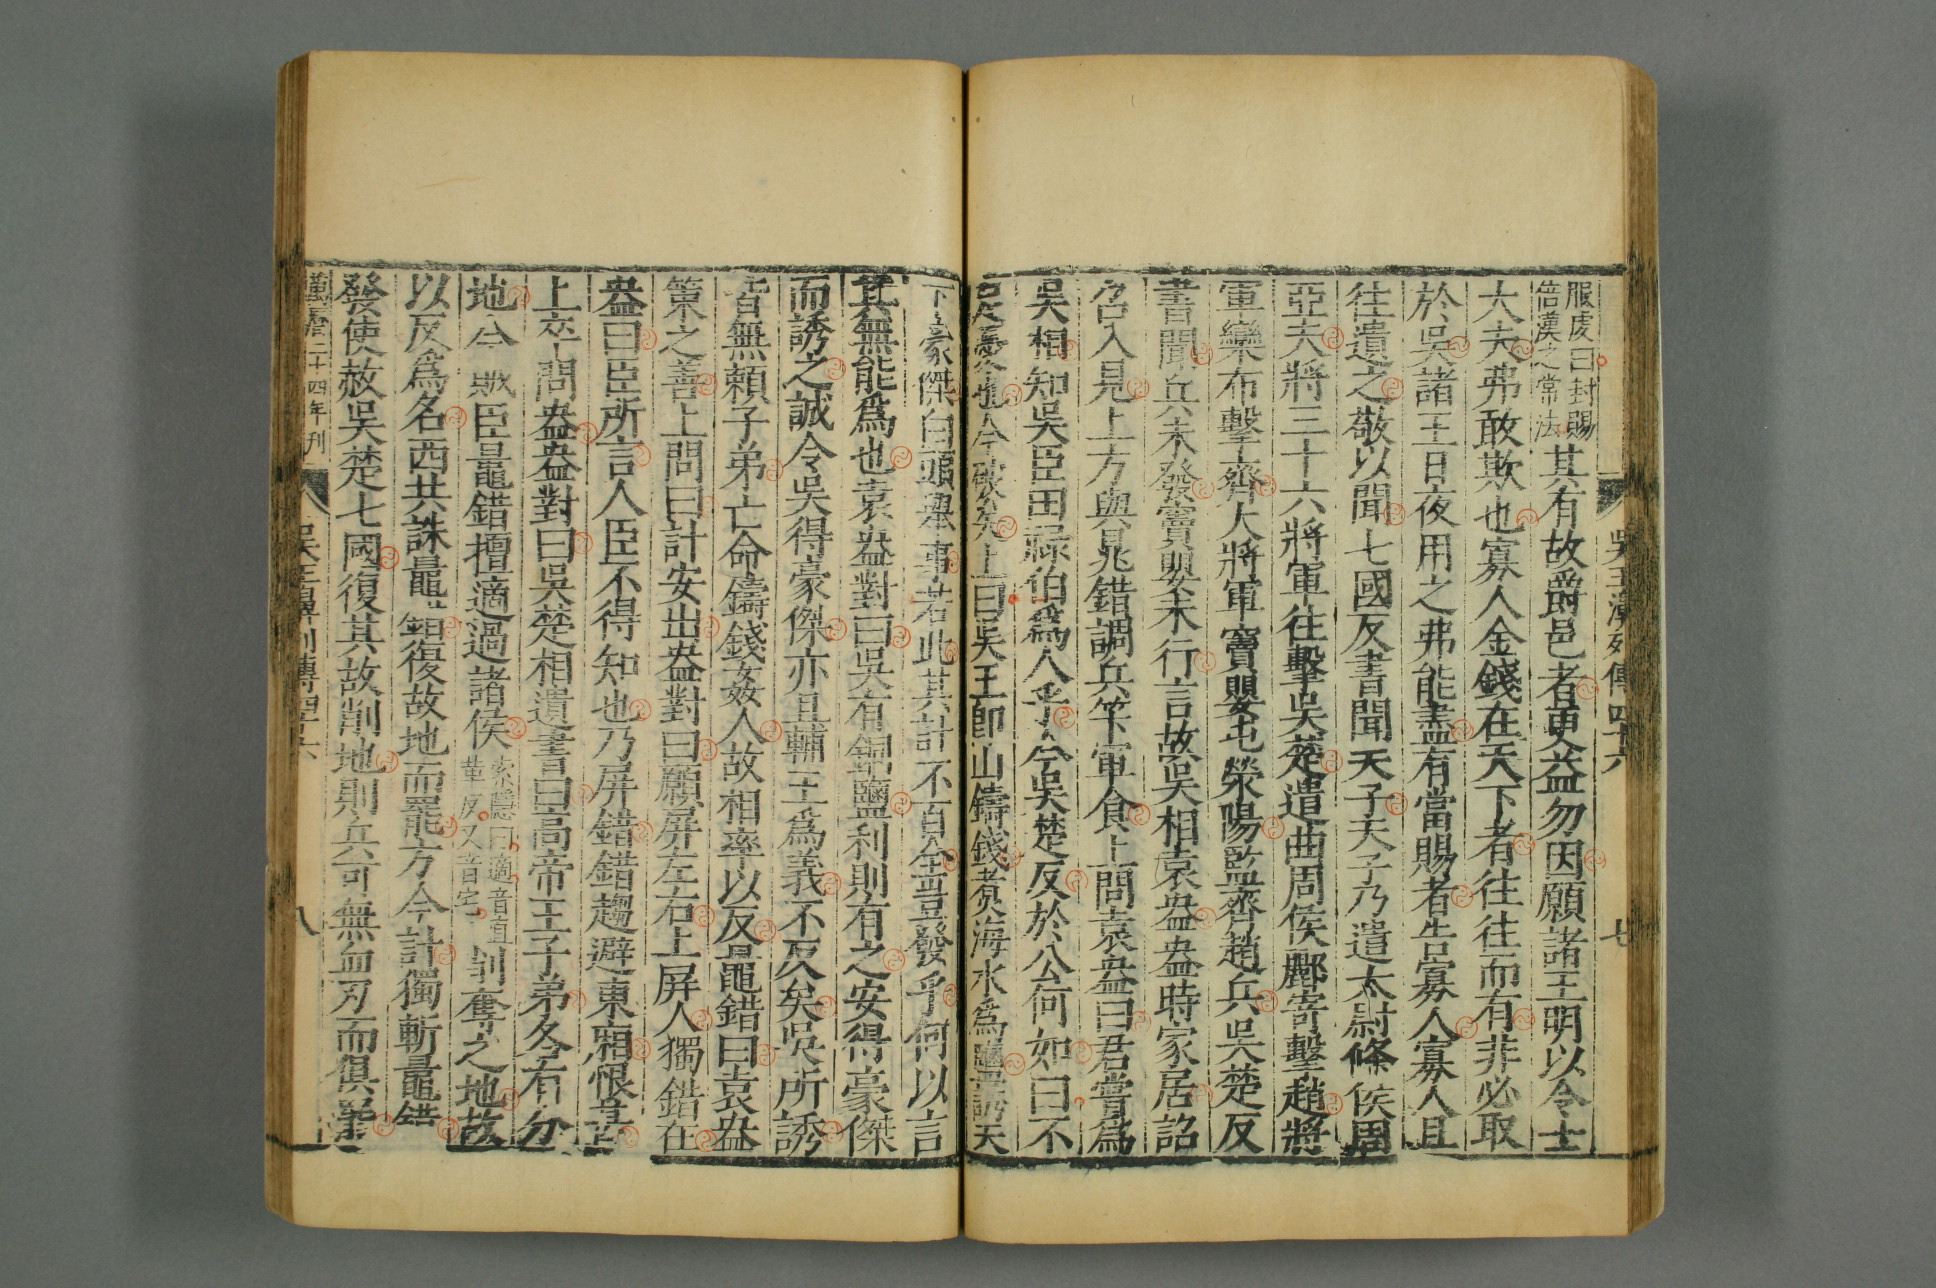 吳王濞列傳四十六
七
服虔曰封賜
倍漢之常法
其有故爵邑者更益勿因願諸王明以令士
大夫弗敢欺也寡人金錢在天下者往往而有非必取
於吳諸王日夜用之弗能盡有當賜者告寡人寡人且
往遺之敬以聞七國反書聞天子天子乃遣太尉條侯周
亞夫將三十六將軍往擊吳楚遣曲周侯酈寄擊趙將
軍欒布擊齊大將軍竇嬰屯滎陽監齊趙兵吳楚反
書聞兵未發竇嬰未行言故吳相袁盎盎時家居詔
召入見上方與晁錯調兵筭軍食上問袁盎曰君嘗爲
吳相知吳臣田祿伯爲人乎今吳楚反於公何如曰不
足憂也今破矣上曰吳王卽山鑄錢煑海水爲鹽誘天
下豪傑白頭舉事若此其計不百全豈發乎何以言
其無能爲也袁盎對曰吳有銅鹽利則有之安得豪傑
而誘之誠令吳得豪傑亦且輔王爲義不反矣吳所誘
皆無賴子弟亡命鑄錢姦人故相率以反鼂錯曰袁盎
策之善上問曰計安出盎對曰願屏左右上屏人獨錯在
盎曰臣所言人臣不得知也乃屏錯錯趨避東廂恨甚
上卒問盎盎對曰吳楚相遺書曰高帝王子弟各有分
地今賊臣鼂錯擅適過諸侯
索隱曰適音直
革反又音宅
削奪之地故
以反爲名西共誅鼂錯復故地而罷方今計獨斬鼂錯
發使赦吳楚七國復其故削地則兵可無血刃而俱罷
萬曆二十四年刊
吳王濞列傳四十六
八